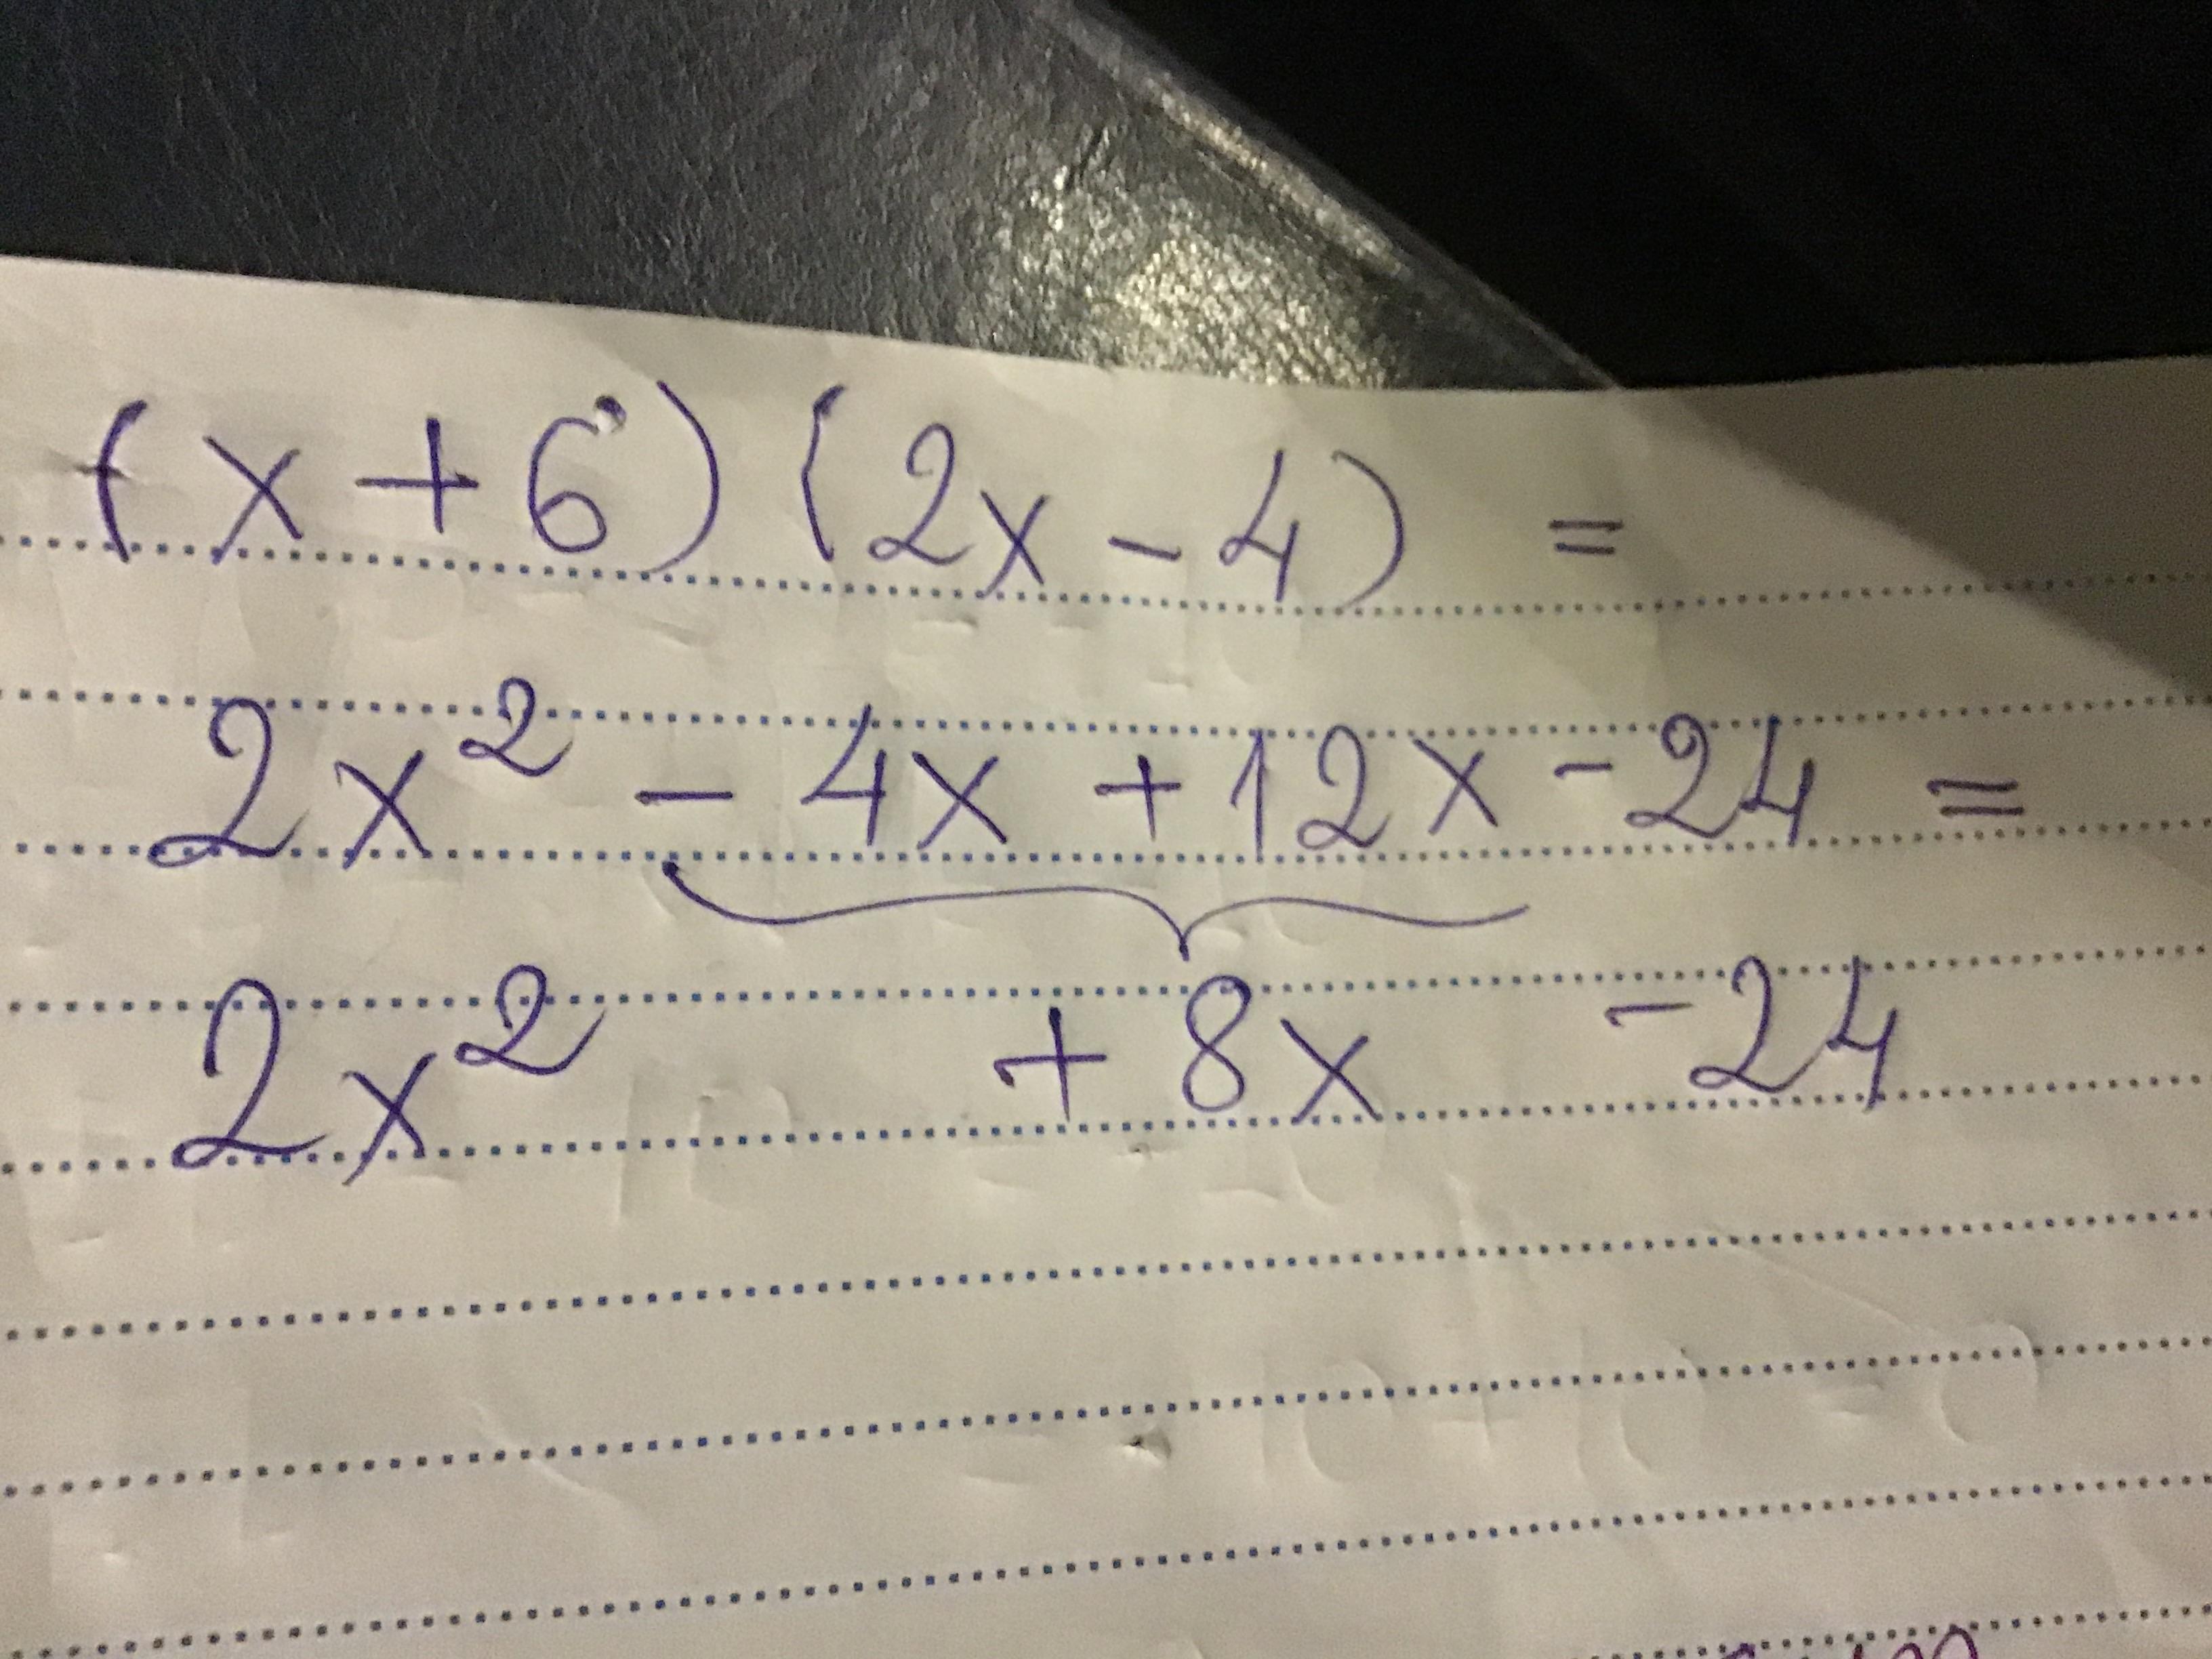 (x+6)(2x-4) =
2x² - 4x + 12x - 24 =
2x² + 8x - 24